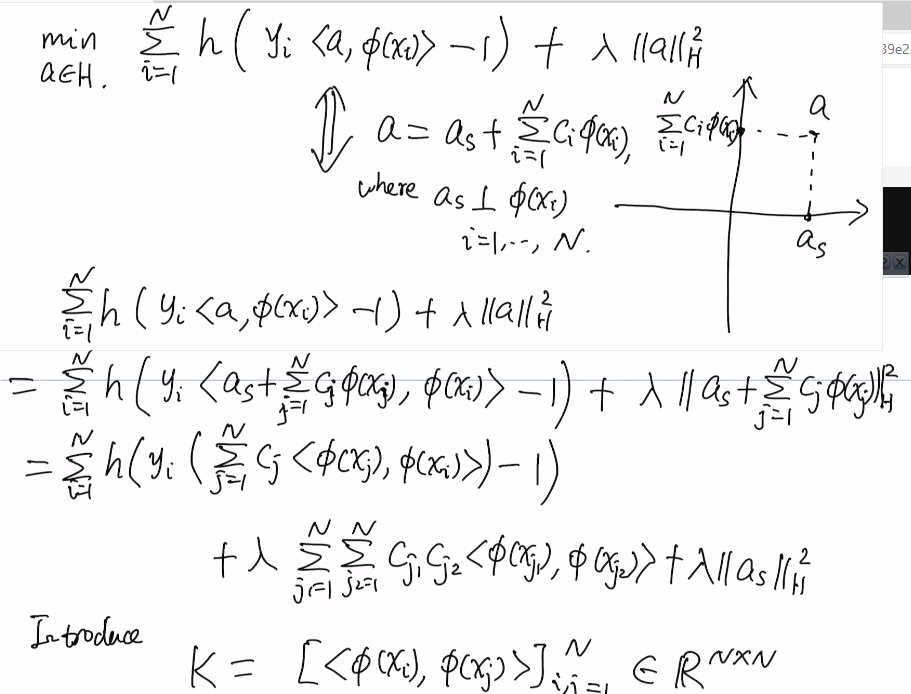 min Σ_{i=1}^{N} h( y_i <a, φ(x_i)> - 1) + λ ||a||_H^2
a∈H.
⇕ a = a_s + Σ_{i=1}^{N} c_i φ(x_i), Σ_{i=1}^{N} c_i φ(x_i) a
where a_s ⊥ φ(x_i)
i=1,..., N. a_s
Σ_{i=1}^{N} h( y_i <a, φ(x_i)> - 1) + λ ||a||_H^2
= Σ_{i=1}^{N} h( y_i <a_s + Σ_{j=1}^{N} c_j φ(x_j), φ(x_i)> - 1) + λ || a_s + Σ_{j=1}^{N} c_j φ(x_j) ||_H^2
= Σ_{i=1}^{N} h( y_i ( Σ_{j=1}^{N} c_j <φ(x_j), φ(x_i)>) - 1)
+ λ Σ_{j_1=1}^{N} Σ_{j_2=1}^{N} c_{j_1} c_{j_2} <φ(x_{j_1}), φ(x_{j_2})> + λ ||a_s||_H^2
Introduce
K = [<φ(x_i), φ(x_j)>]_{i,j=1}^{N} ∈ ℝ^{N×N}